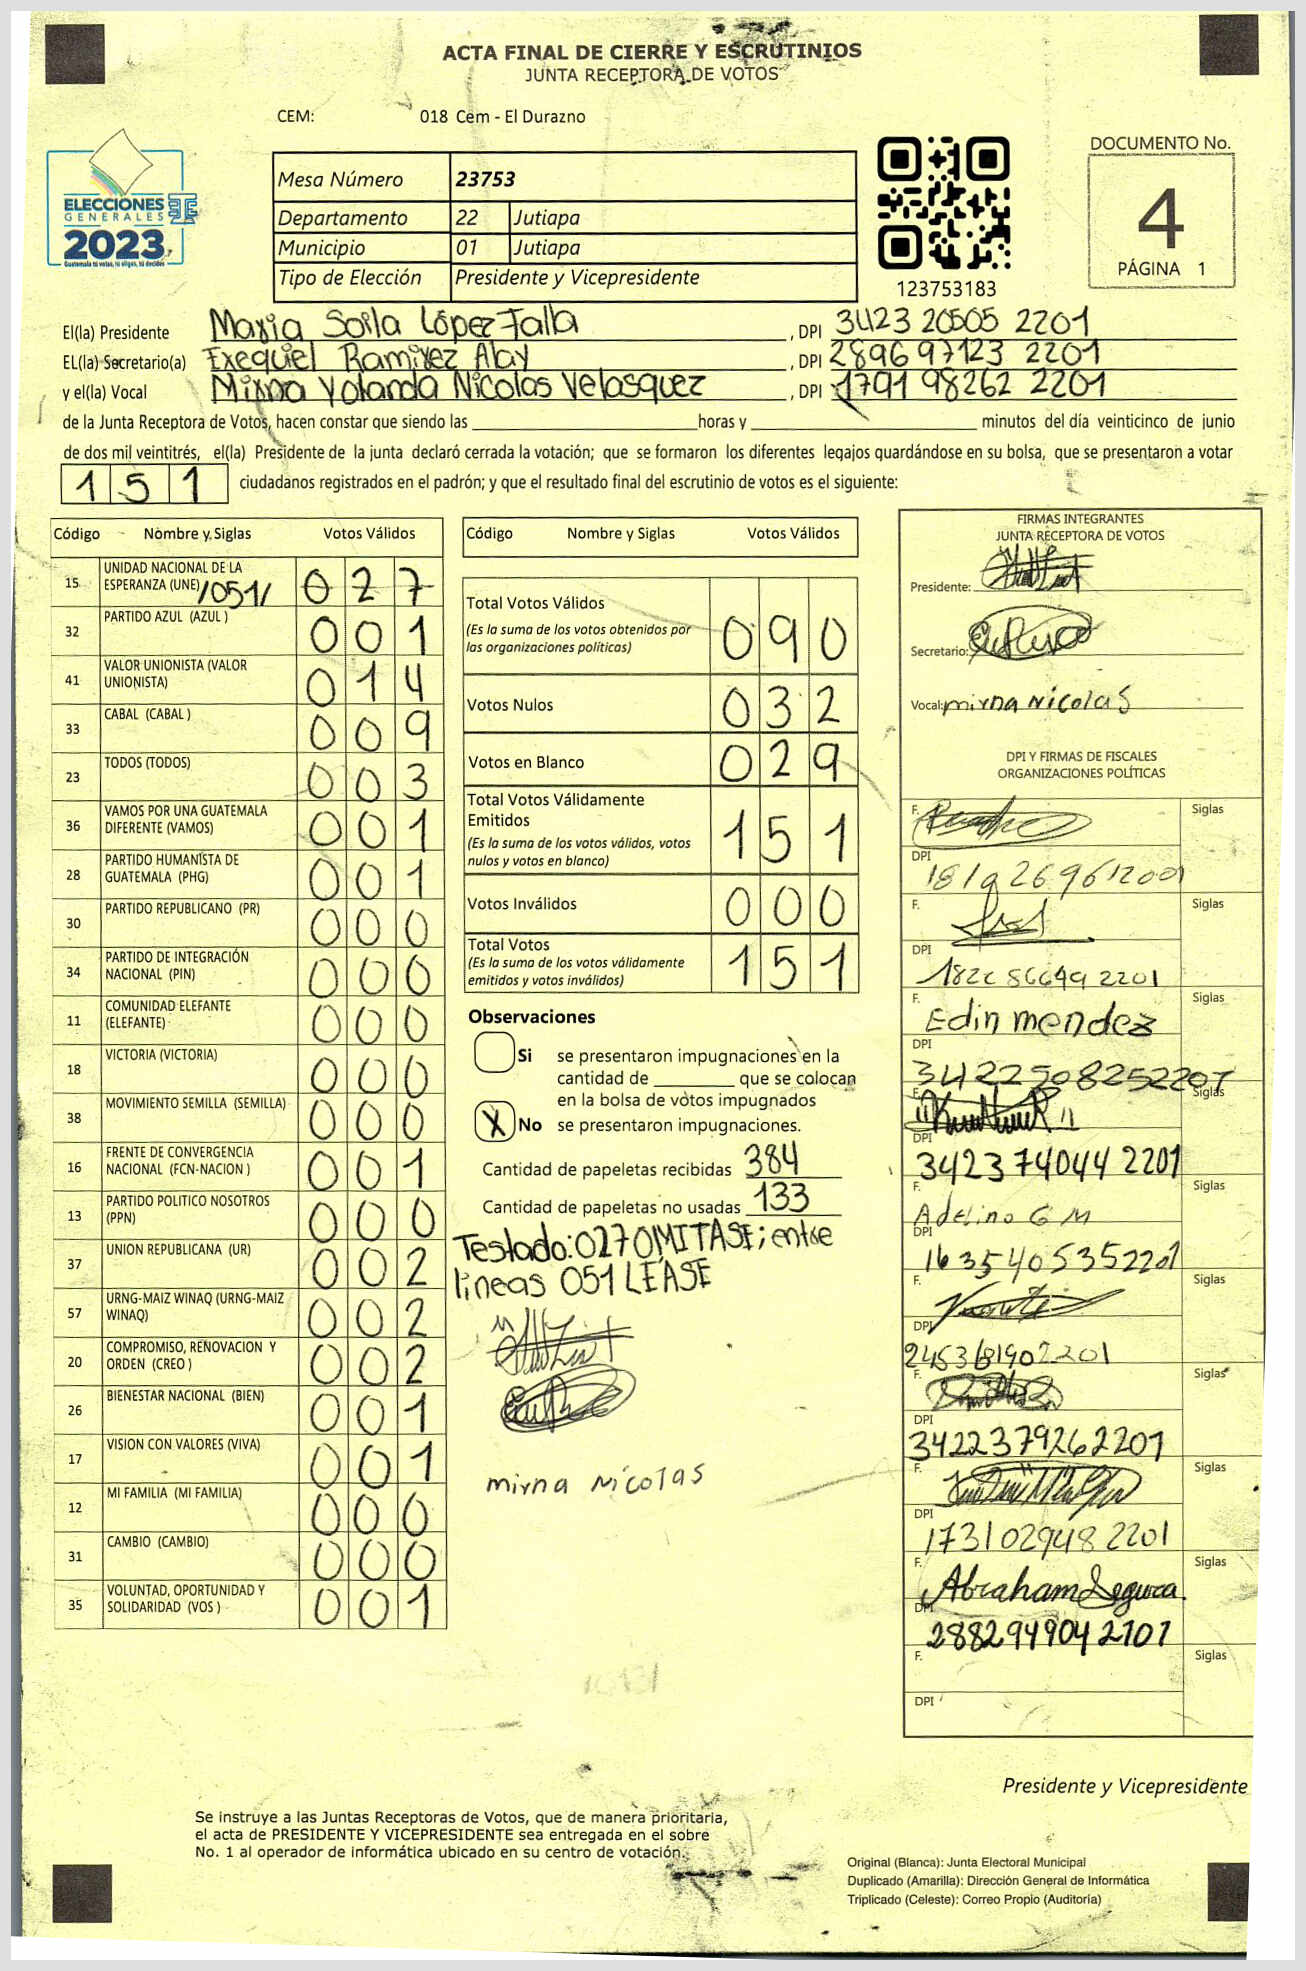 ACTA FINAL DE CIERRE Y ESCRUTINIOS
JUNTA RECEPTORA DE VOTOS
CEM: 018 Cem - El Durazno
ELECCIONES
GENERALES
2023
Guatemala tú votas, tú eliges, tú decides
Mesa Número 23753
Departamento 22 Jutiapa
Municipio 01 Jutiapa
Tipo de Elección Presidente y Vicepresidente
123753183
DOCUMENTO No.
4
PÁGINA 1
El(la) Presidente Maria Soila López Falla, DPI 3423 20505 2201
EL(la) Secretario(a) Exequiel Ramirez Alay, DPI 2896 97123 2201
y el(la) Vocal Mirna Yolanda Nicolas Velasquez, DPI 1791 98262 2201
de la Junta Receptora de Votos, hacen constar que siendo las ____ horas y ____ minutos del día veinticinco de junio
de dos mil veintitrés, el(la) Presidente de la junta declaró cerrada la votación; que se formaron los diferentes legajos quardándose en su bolsa, que se presentaron a votar
151 ciudadanos registrados en el padrón; y que el resultado final del escrutinio de votos es el siguiente:
Código Nombre y Siglas Votos Válidos
15 UNIDAD NACIONAL DE LA ESPERANZA (UNE) /051/ 027
32 PARTIDO AZUL (AZUL ) 001
41 VALOR UNIONISTA (VALOR UNIONISTA) 014
33 CABAL (CABAL ) 009
23 TODOS (TODOS) 003
36 VAMOS POR UNA GUATEMALA DIFERENTE (VAMOS) 001
28 PARTIDO HUMANISTA DE GUATEMALA (PHG) 001
30 PARTIDO REPUBLICANO (PR) 000
34 PARTIDO DE INTEGRACIÓN NACIONAL (PIN) 000
11 COMUNIDAD ELEFANTE (ELEFANTE) 000
18 VICTORIA (VICTORIA) 000
38 MOVIMIENTO SEMILLA (SEMILLA) 000
16 FRENTE DE CONVERGENCIA NACIONAL (FCN-NACION ) 001
13 PARTIDO POLITICO NOSOTROS (PPN) 000
37 UNION REPUBLICANA (UR) 002
57 URNG-MAIZ WINAQ (URNG-MAIZ WINAQ) 002
20 COMPROMISO, RENOVACION Y ORDEN (CREO ) 002
26 BIENESTAR NACIONAL (BIEN) 001
17 VISION CON VALORES (VIVA) 001
12 MI FAMILIA (MI FAMILIA) 000
31 CAMBIO (CAMBIO) 000
35 VOLUNTAD, OPORTUNIDAD Y SOLIDARIDAD (VOS ) 001
Código Nombre y Siglas Votos Válidos
Total Votos Válidos 090
(Es la suma de los votos obtenidos por
las organizaciones políticas)
Votos Nulos 032
Votos en Blanco 029
Total Votos Válidamente
Emitidos 151
(Es la suma de los votos válidos, votos
nulos y votos en blanco)
Votos Inválidos 000
Total Votos 151
(Es la suma de los votos válidamente
emitidos y votos inválidos)
Observaciones
Si se presentaron impugnaciones en la
cantidad de ____ que se colocan
en la bolsa de votos impugnados
X No se presentaron impugnaciones.
Cantidad de papeletas recibidas 384
Cantidad de papeletas no usadas 133
Testado: 027 OMITASE; entre
lineas 051 LEASE
mirna Nicolas
FIRMAS INTEGRANTES
JUNTA RECEPTORA DE VOTOS
Presidente:
Secretario:
Vocal: mirna Nicolas
DPI Y FIRMAS DE FISCALES
ORGANIZACIONES POLÍTICAS
F. Siglas
DPI 1819 26961 2201
F. Siglas
DPI
F. Edin mendez Siglas
DPI 3422508252207
F. Siglas
DPI 3423740442201
F. Adelino G M Siglas
DPI 1635405352201
F. Siglas
DPI 2453681902201
F. Siglas
DPI 3422379262201
F. Siglas
DPI 1731029482201
F. Abraham Segura Siglas
DPI 2882949042101
F. Siglas
DPI
Presidente y Vicepresidente
Se instruye a las Juntas Receptoras de Votos, que de manera prioritaria,
el acta de PRESIDENTE Y VICEPRESIDENTE sea entregada en el sobre
No. 1 al operador de informática ubicado en su centro de votación.
Original (Blanca): Junta Electoral Municipal
Duplicado (Amarilla): Dirección General de Informática
Triplicado (Celeste): Correo Propio (Auditoría)